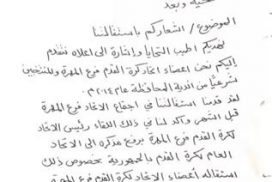 تحية وبعد
الموضوع / اشعاركم باستقالتنا
نهديكم اطيب التحايا واشارة الى اعلاه نتقدم
إليكم نحن اعضاء اتحاد كرة القدم فرع المهرة والمنتخبين
شرعياً من اندية المحافظة عام ٢٠١٤م
لقد قدمنا استقالتنا في اجتماع الاتحاد فرع المهرة
قبل الشهر وأكد لنا في ذلك اللقاء رئيس الاتحاد
لكرة القدم فرع المهرة برفع مذكرة الى الاتحاد
العام لكرة القدم بالجمهورية بخصوص ذلك
استقالة أعضاء الاتحاد لكرة القدم فرع المهرة